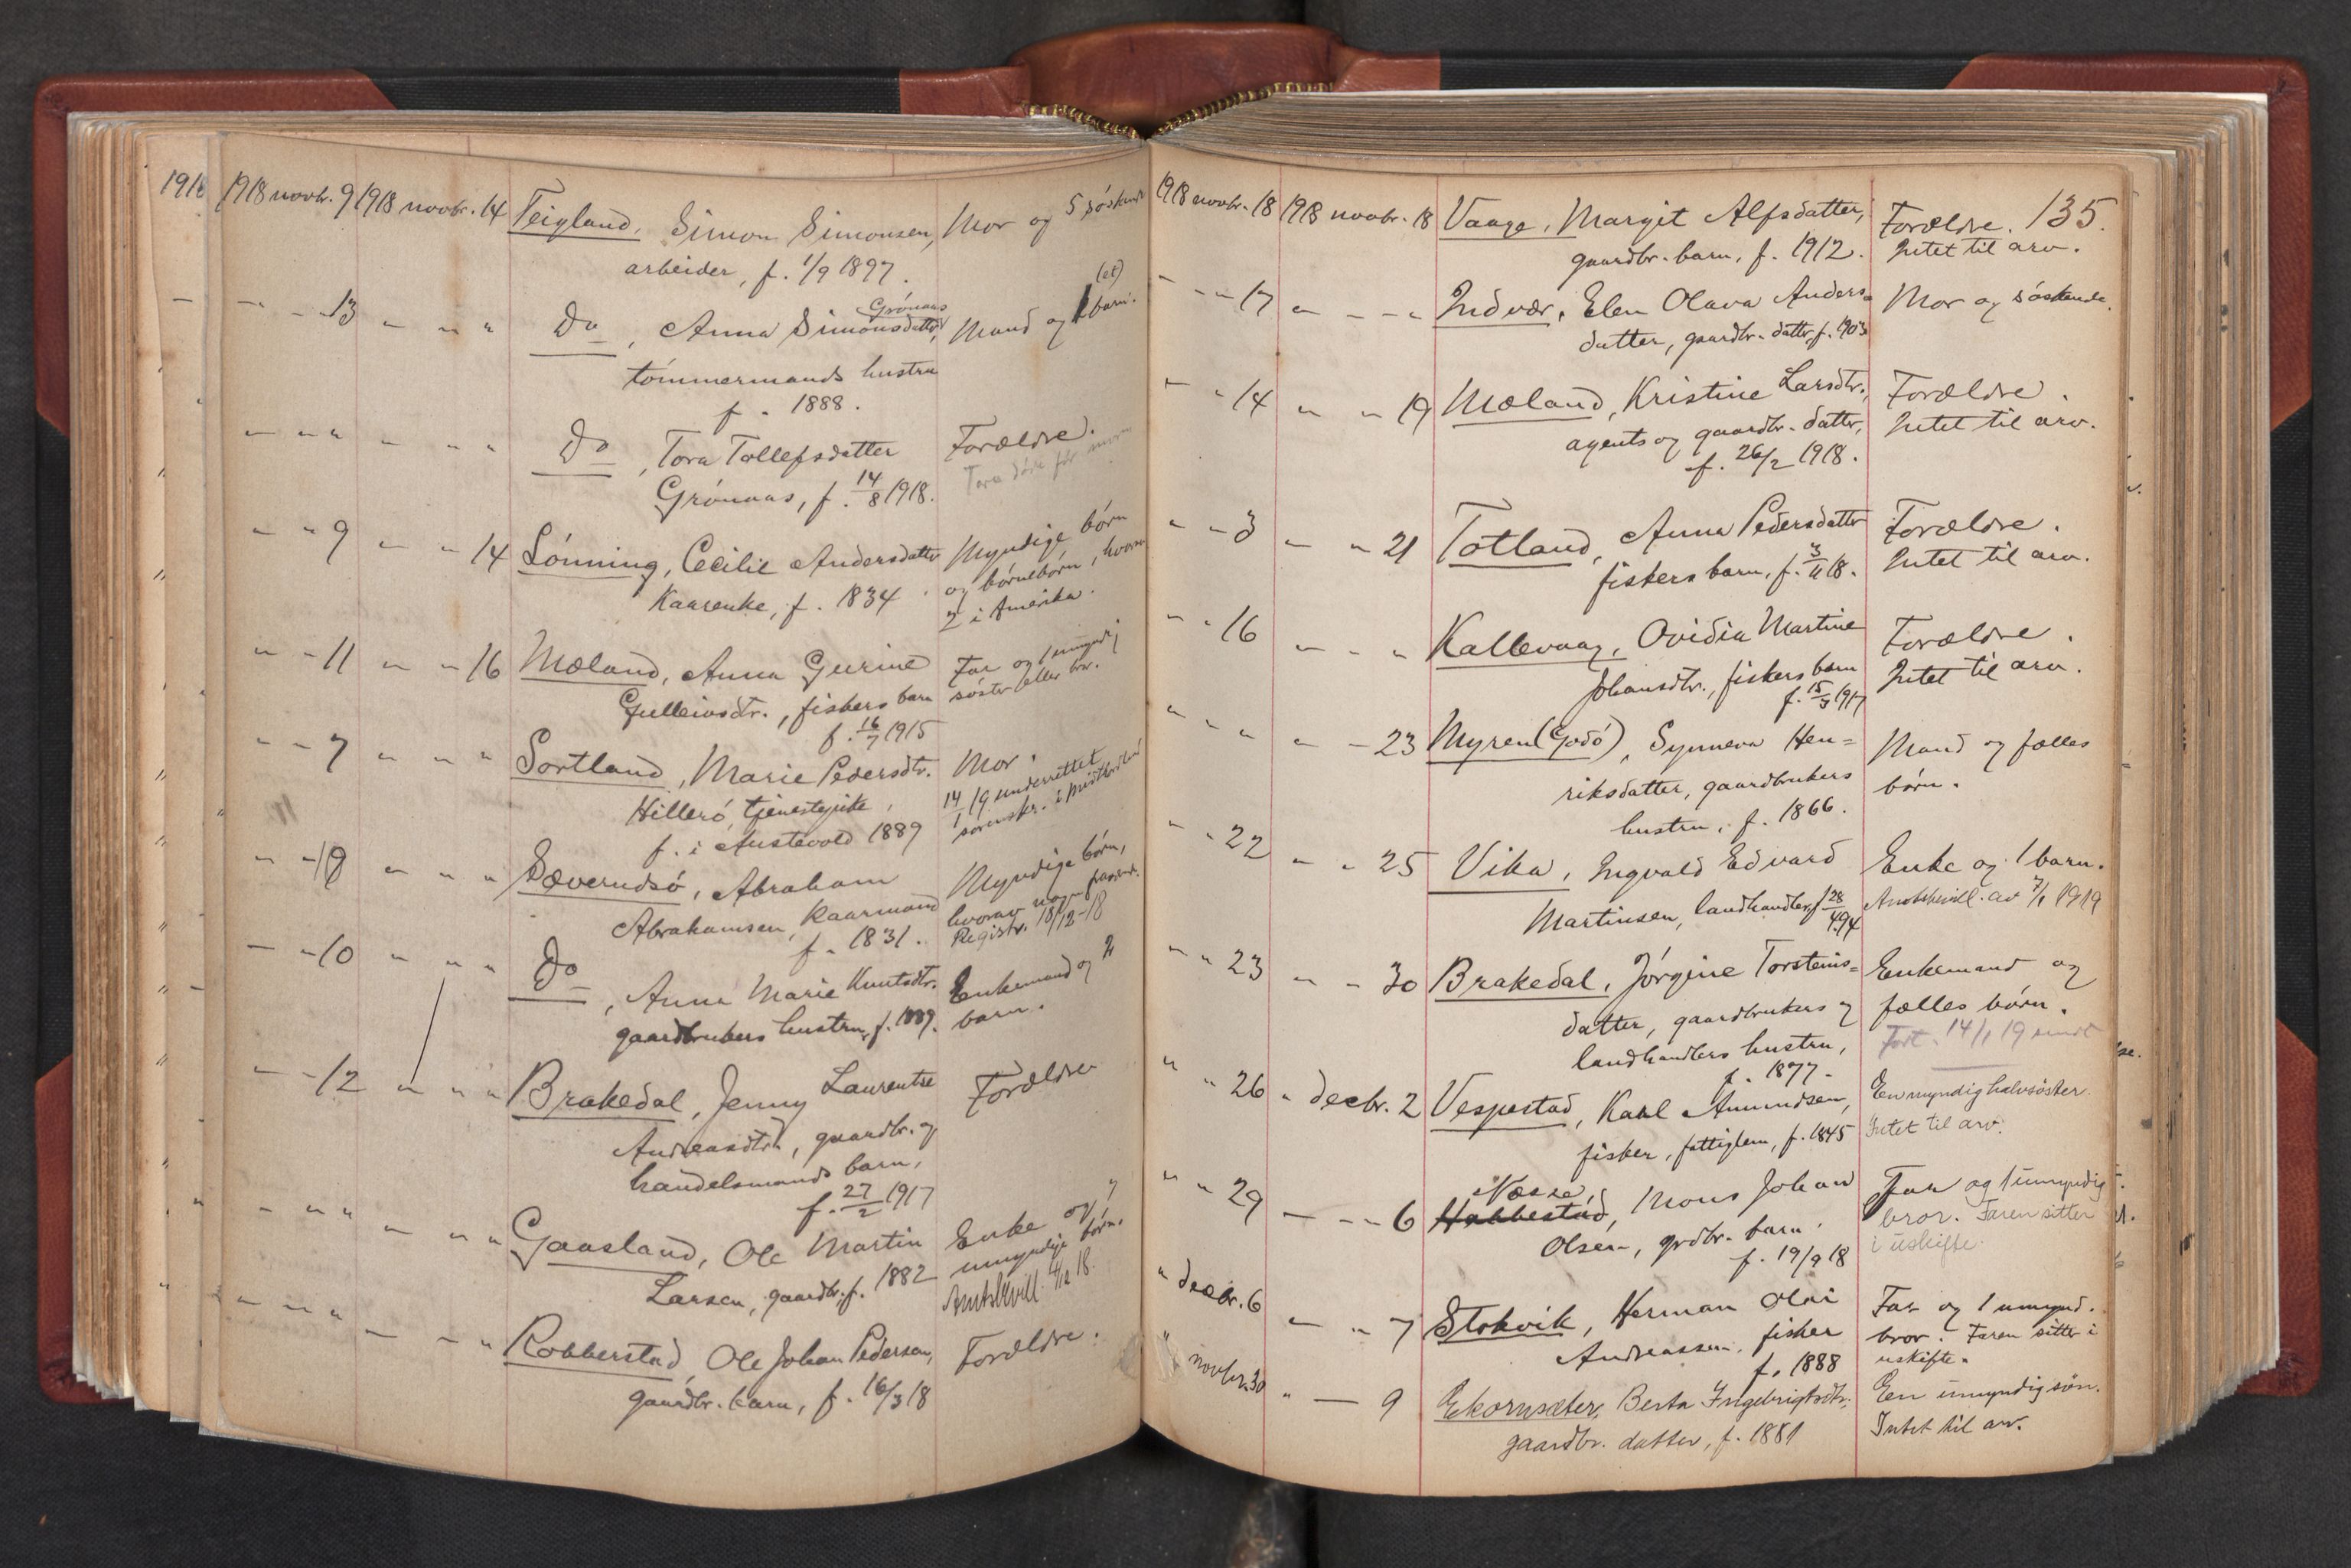 1918 novbr. 9 1918 novbr. 14 Teigland, Simon Simonsen, Mor og 5 søskend
arbeider, f. 1/9 1897.
" " 13 " " " Do, Anna Simonsdatter Grønaas, Mand og 1 (et) barn.
tømmermands hustru
f. 1888.
" " " " " " Do, Tora Tollefsdatter Forældre.
Grønaas, f. 14/8 1918. Tora døde før moren
" " 9 " " 14 Lønning, Cecilie Andersdatter Myndige børn
Kaarenke, f. 1834. og børnebørn, hvorav
2 i Amerika.
" " 11 " " 16 Mæland, Anna Gurine Far og 1 umyndig
Gulleivsdtr., fiskers barn søster eller bror.
f. 16/7 1915
" " 7 " " " Sortland, Marie Pedersdtr. Mor.
Hillerø, tjenestepike, 14/1 19 underrettet
f. i Austevold 1889 sorenskr. i Midthordland
" " 18 " " " Sæverudsø, Abraham Myndige børn,
Abrahamsen, Kaarmand hvorav nogen
f. 1831. Registr. 18/12-18
" " 10 " " " Do, Anna Marie Knutsdtr. Enkemand og 2
gaardbrukers hustru, f. 1889. barn.
" " 12 " " " Brakedal, Jenny Laurentse Forældre
Andreasdtr., gaardbr. og
handelsmands barn,
f. 27/2 1917
" " " " " " Gaasland, Ole Martin Enke og 7
Larsen, gaardbr. f. 1882 umyndige børn.
Amtsbevill. 4/12 18.
" " " " " " Robberstad, Ole Johan Pedersen, Forældre.
gaardbr. barn, f. 16/3 18
135.
1918 novbr. 18 1918 novbr. 18 Vaage, Margit Alfsdatter, Forældre.
gaardbr. barn, f. 1912. Intet til arv.
" " 17 " " " Indvær, Elen Olava Anders- Mor og søskende.
datter, gaardbr. datter, f. 1903
" " 14 " " 19 Mæland, Kristine Larsdtr., Forældre.
agents og gaardbr. datter, Intet til arv.
f. 26/2 1918.
" " 3 " " 21 Totland, Anna Pedersdatter Forældre.
fiskers barn, f. 3/11 18. Intet til arv.
" " 16 " " " Kallevaag, Ovidia Martine Forældre.
Johansdtr., fiskers barn Intet til arv.
f. 15/3 1917
" " " " " 23 Myren (Godø), Synneva Hen= Mand og fælles
riksdatter, gaardbrukers børn.
hustru, f. 1866.
" " 22 " " 25 Vika, Ingvald Edvard Enke og 1 barn.
Martinsen, landhandler, f. 28/4 94 Amtsbevill. av 7/1 1919
" " 23 " " 30 Brakedal, Jørgine Torsteins= Enkemand og
datter, gaardbrukers og fælles børn.
landhandlers hustru, Fort. 14/1 19 sendt
f. 1877.
" " 26 " decbr. 2 Vespestad, Karl Amundsen, En myndig halvsøster.
fisker, fattiglem, f. 1845 Intet til arv.
" " 29 " " 6 Habbestad Næsse, Mons Johan Far og 1 umyndig
Olsen, grdbr. barn. bror. Faren sitter
f. 19/9 18 i uskifte.
" decbr. 6 " " 7 Stokvik, Herman Olai Far og 1 umynd.
Andreassen, fisker bror. Faren sitter i
f. 1888 uskifte.
" novbr. 30 " " 9 Ekornsæter, Berta Ingebrigtsdtr., En umyndig søn.
gaardbr. datter, f. 1881 Intet til arv.